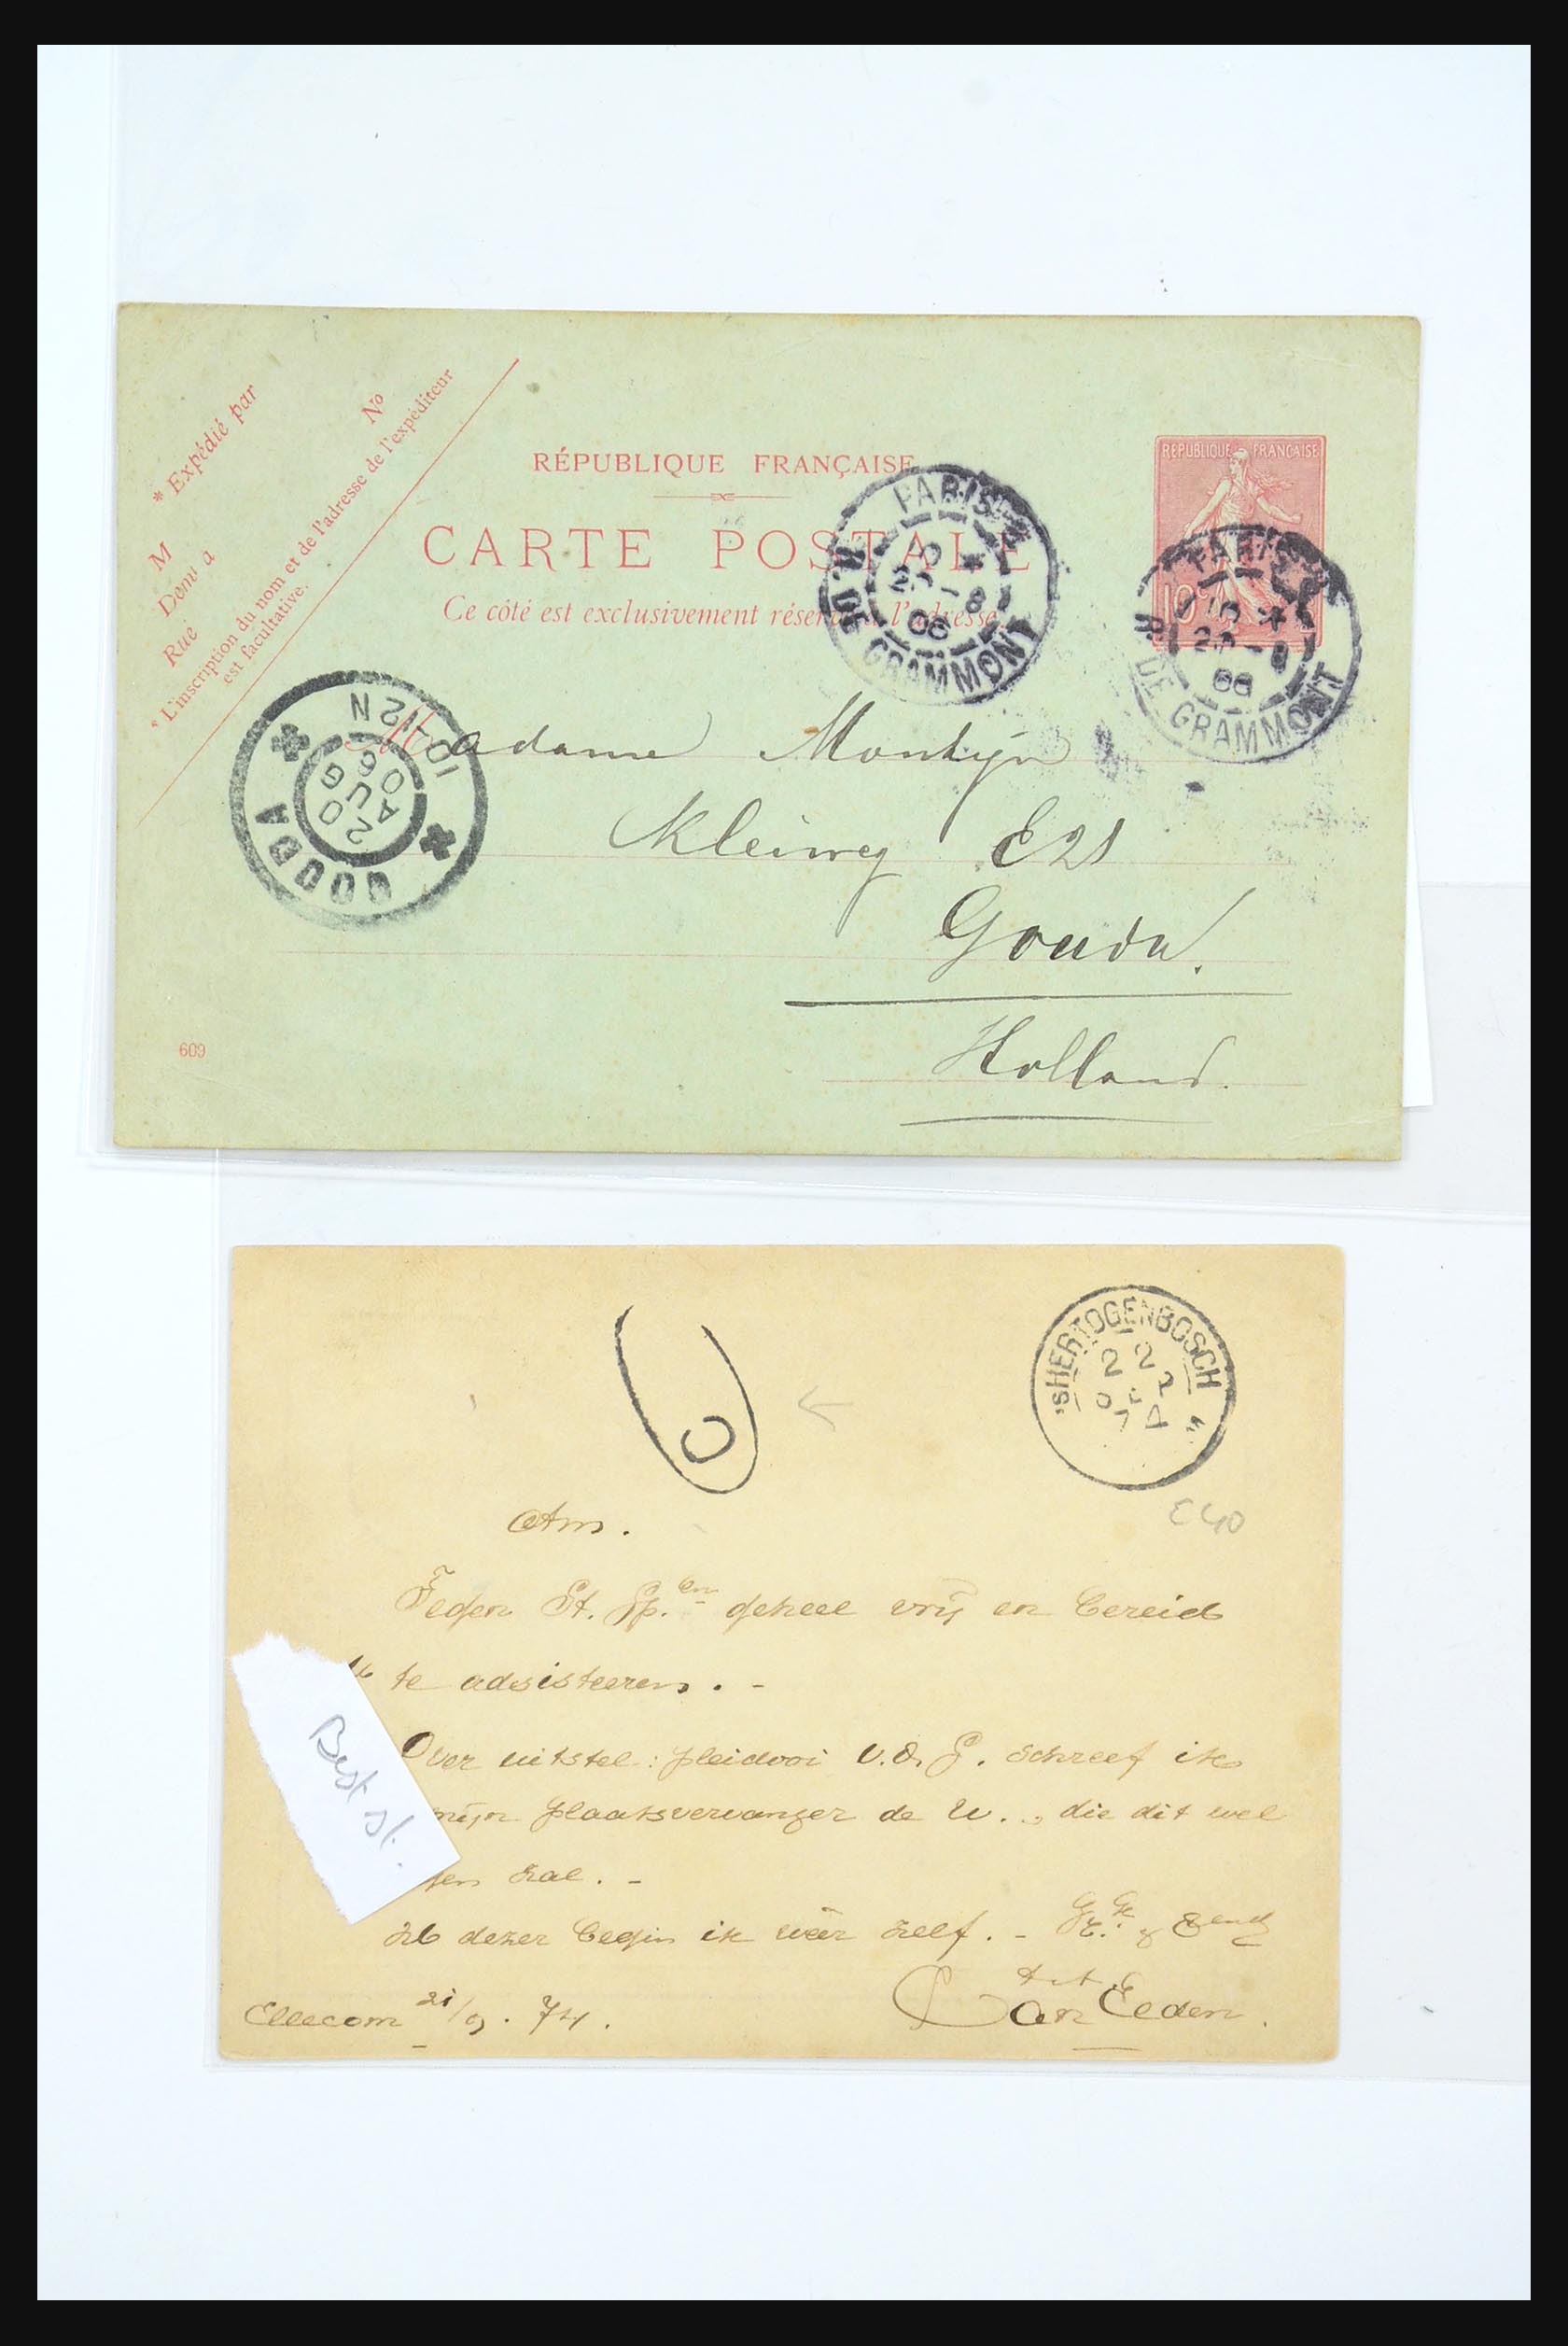 * Expédié par
M
Demt à
Rue
No
* L'inscription du nom et de l'adresse de l'expéditeur
est facultative.
RÉPUBLIQUE FRANÇAISE
CARTE POSTALE
Ce côté est exclusivement réservé à l'adresse
PARIS
20 - 8
06
R. DE GRAMMONT
REPUBLIQUE FRANÇAISE
10c
PARIS
R. DE GRAMMONT
GOUDA
10-12N
Madame Montijn
Kleiweg E21
Gouda.
Holland.
609
'SHERTOGENBOSCH
22
74
€40
Am.
Tegen St. Sp.en geheel vrij en bereid
te adsisteeren. -
Over uitstel: pleidooi v.d. G. schreef ik
mijn plaatsvervanger de W.., die dit wel
zal. -
26 dezer begin ik wéér zelf. -
Ellecom 21/9. 74.
van Eelden.
Best st.